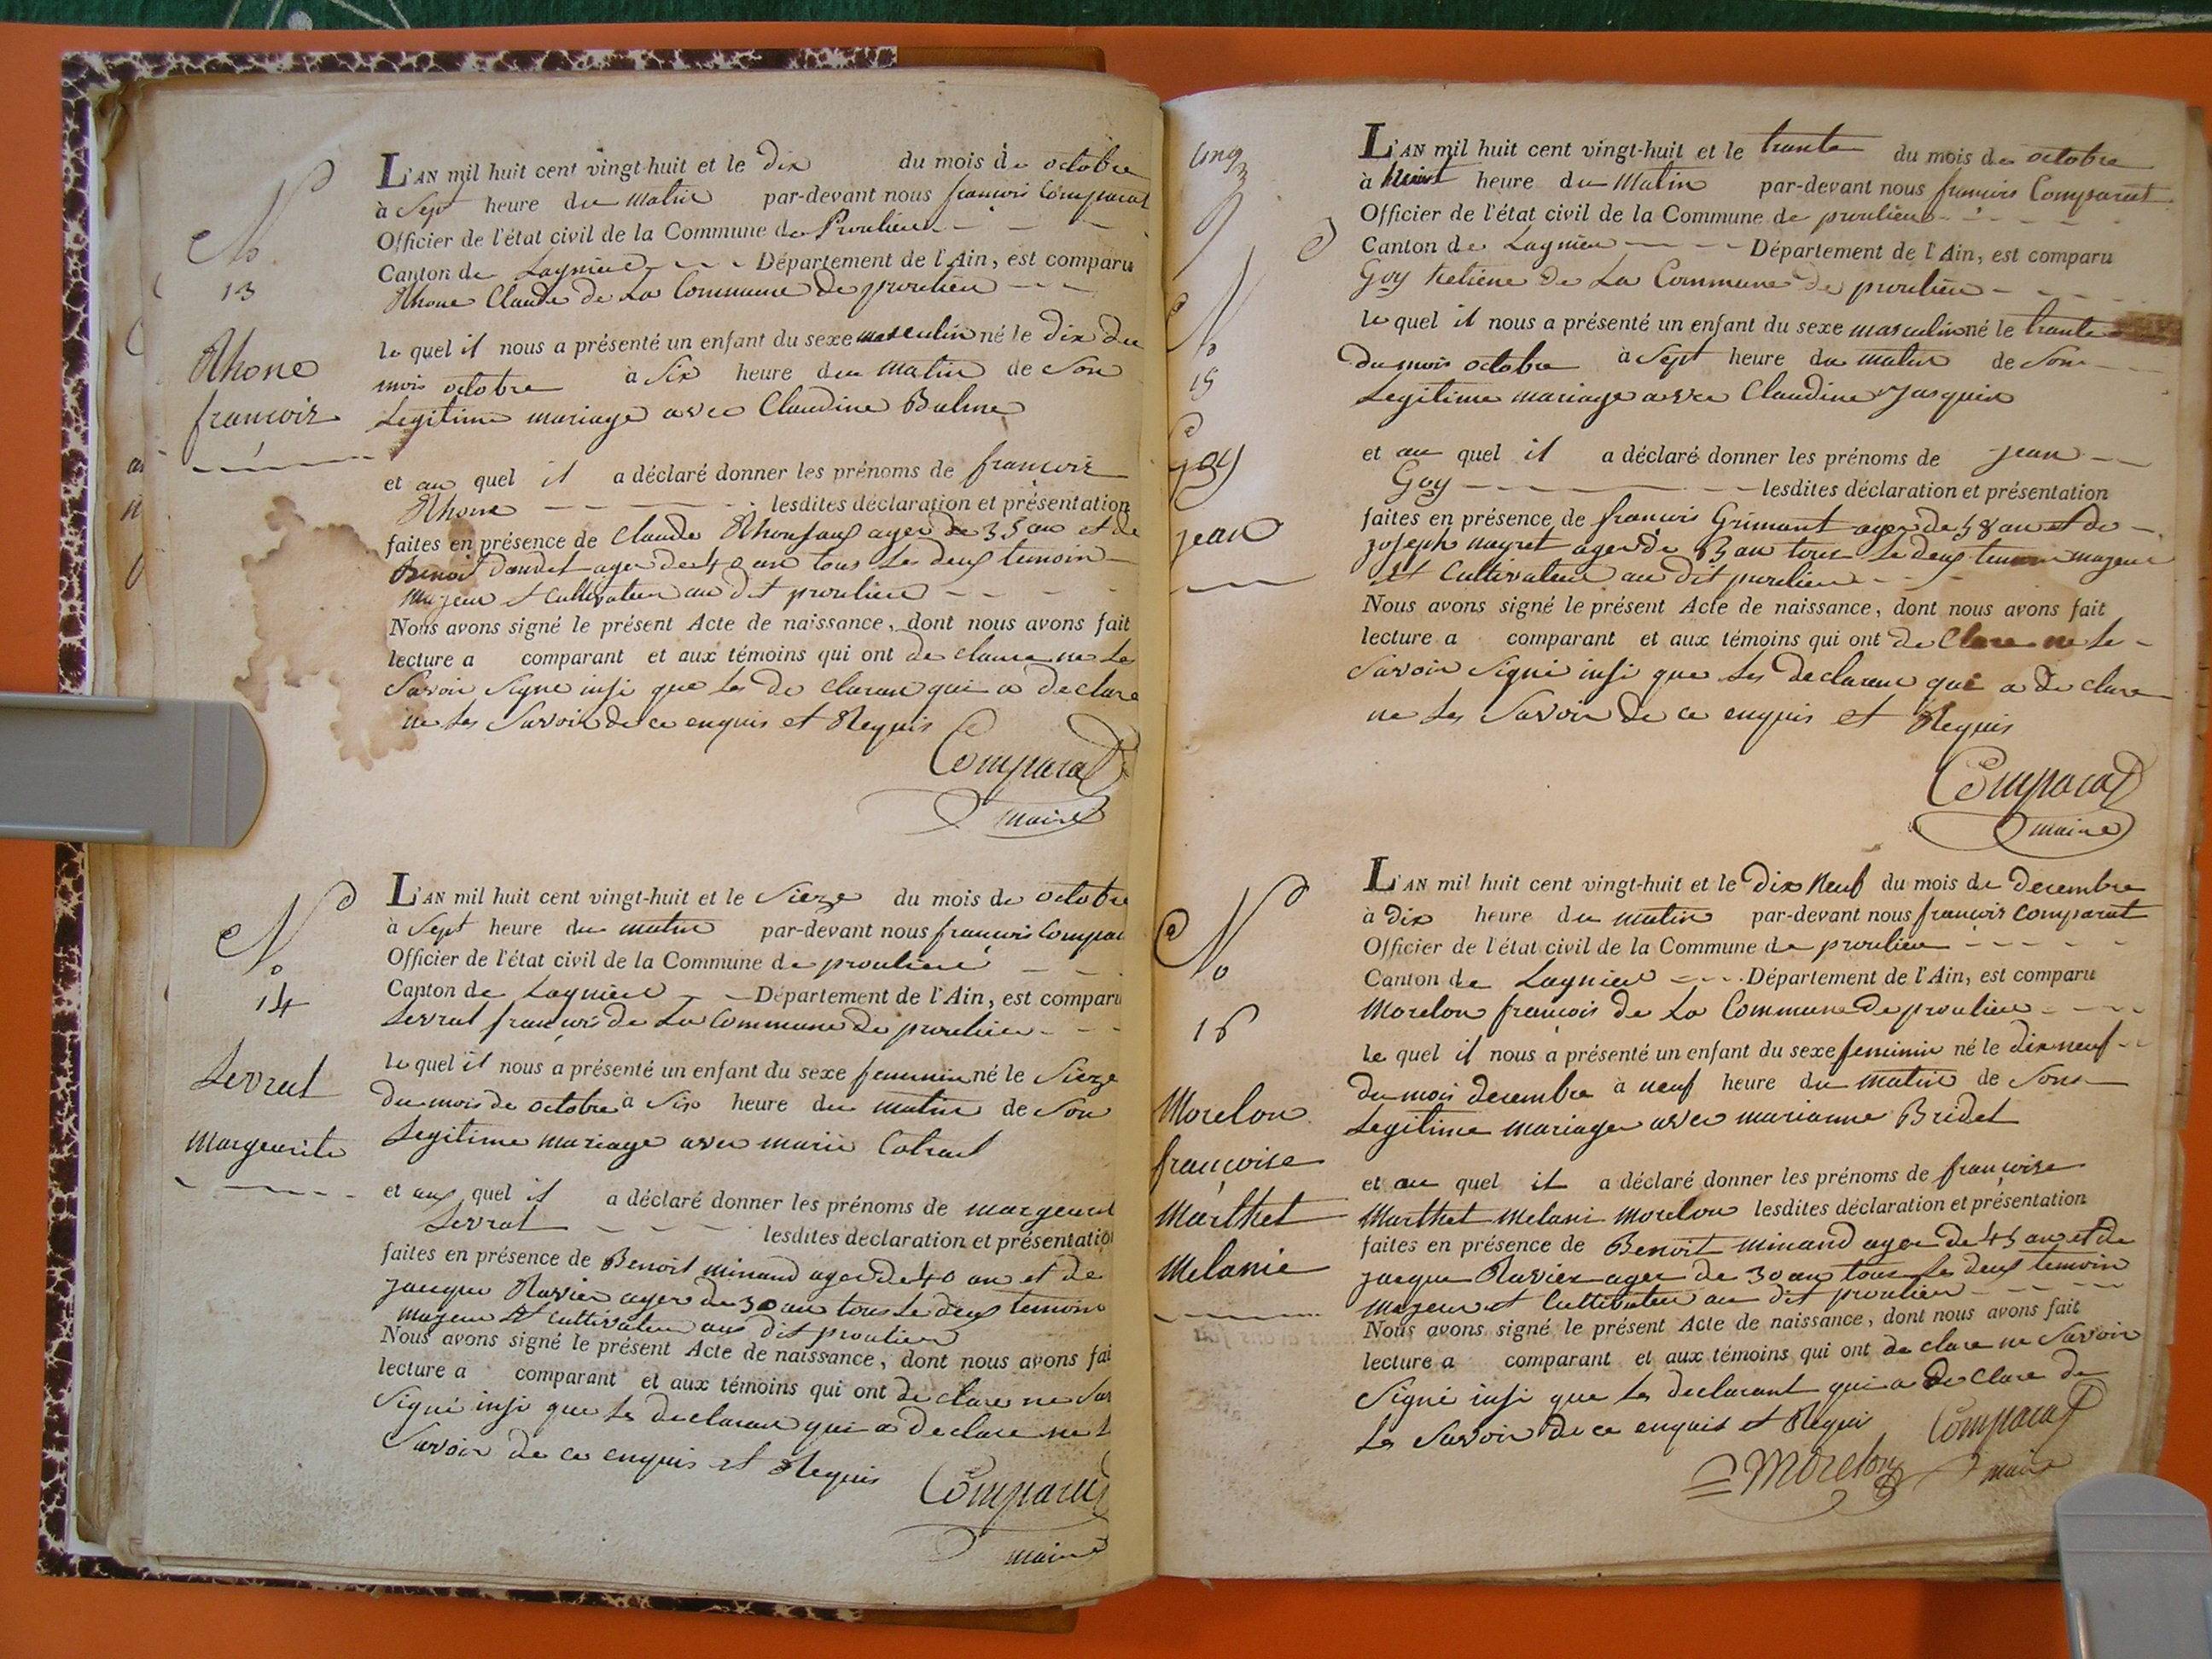 No
13
Rhone
francois
L'AN mil huit cent vingt-huit et le dix du mois de octobre
à Sept heure du matin par-devant nous francois Comparat
Officier de l'état civil de la Commune de Proulieu
Canton de Lagnieu Département de l'Ain, est comparu
Rhone Claude de La Commune de proulieu
le quel il nous a présenté un enfant du sexe masculin né le dix du
mois octobre à Six heure du matin de Son
Legitime mariage avec Claudine Balme
et au quel il a déclaré donner les prénoms de francois
Rhone lesdites déclaration et présentation
faites en présence de Claude ager de 35 an et de
Benoit ager de 40 an tous Les deux temoin
majeur et cultivateur au dit proulieu
Nous avons signé le présent Acte de naissance, dont nous avons fait
lecture a comparant et aux témoins qui ont de clare ne Les
Savoir Signe insi que Les de claran qui a de clare
ne Les Savoir de ce enquis et Requis
Comparat
maire
No
14
Levrat
Margeurite
L'AN mil huit cent vingt-huit et le Sieze du mois de octobre
à Sept heure du matin par-devant nous francois Compar
Officier de l'état civil de la Commune de proulieu
Canton de Lagnieu Département de l'Ain, est comparu
Levrat francois de La Commune de proulieu
le quel il nous a présenté un enfant du sexe feminin né le Sieze
du mois de octobre à Six heure du matin de Son
Legitime mariage avec marie
et au quel il a déclaré donner les prénoms de margeurit
Levrat lesdites déclaration et présentatio
faites en présence de Benoit minand ager de 40 an et de
jacque Ravier ager de 30 an tous Le deux temoin
majeur et cultivateur au dit proulieu
Nous avons signé le présent Acte de naissance, dont nous avons fai
lecture a comparant et aux témoins qui ont de clare ne Sav
Signé insi que Les declaran qui a declare ne L
Savoir de ce enquis et Requis
Comparat
maire
Cinq
No
15
Goy
jean
L'AN mil huit cent vingt-huit et le trante du mois de octobre
à heure du Matin par-devant nous francois Comparat
Officier de l'état civil de la Commune de proulieu
Canton de Lagnieu Département de l'Ain, est comparu
Goy de La Commune de proulieu
le quel il nous a présenté un enfant du sexe masculin né le trante
du mois octobre à Sept heure du matin de Son
Legitime mariage avec Claudine Jasquin
et au quel il a déclaré donner les prénoms de jean
Goy lesdites déclaration et présentation
faites en présence de francois Grimant ager de 58 an et de
joseph nayret ager de an tous Le deux temoin majeur
et Cultivateur au dit proulieu
Nous avons signé le présent Acte de naissance, dont nous avons fait
lecture a comparant et aux témoins qui ont de Clare ne Le
Savoir Signé insi que Les declarent qui a de clare
ne Les Savoir de ce enquis et Requis
Comparat
maire
No
16
Morelon
françoise
Marthet
Melanie
L'AN mil huit cent vingt-huit et le dix Neuf du mois de decembre
à Dix heure du matin par-devant nous françois Comparat
Officier de l'état civil de la Commune de proulieu
Canton de Lagnieu Département de l'Ain, est comparu
Morelon françois de La Commune de proulieu
le quel il nous a présenté un enfant du sexe feminin né le dix neuf
du mois decembre à neuf heure du matin de Son
Legitime mariage avec marianne Bridet
et au quel il a déclaré donner les prénoms de françoise
Marthet Melani Morelon lesdites déclaration et présentation
faites en présence de Benoit minand ager de 45 an et de
jacque Ravier ager de 30 an tous Les deux temoin
majeur et Cultivateur au dit proulieu
Nous avons signé le présent Acte de naissance, dont nous avons fait
lecture a comparant et aux témoins qui ont de clare ne Savoir
Signé insi que Les declarant qui a de Clare de
Les Savoir de ce enquis et Requis Comparat
Morelon maire